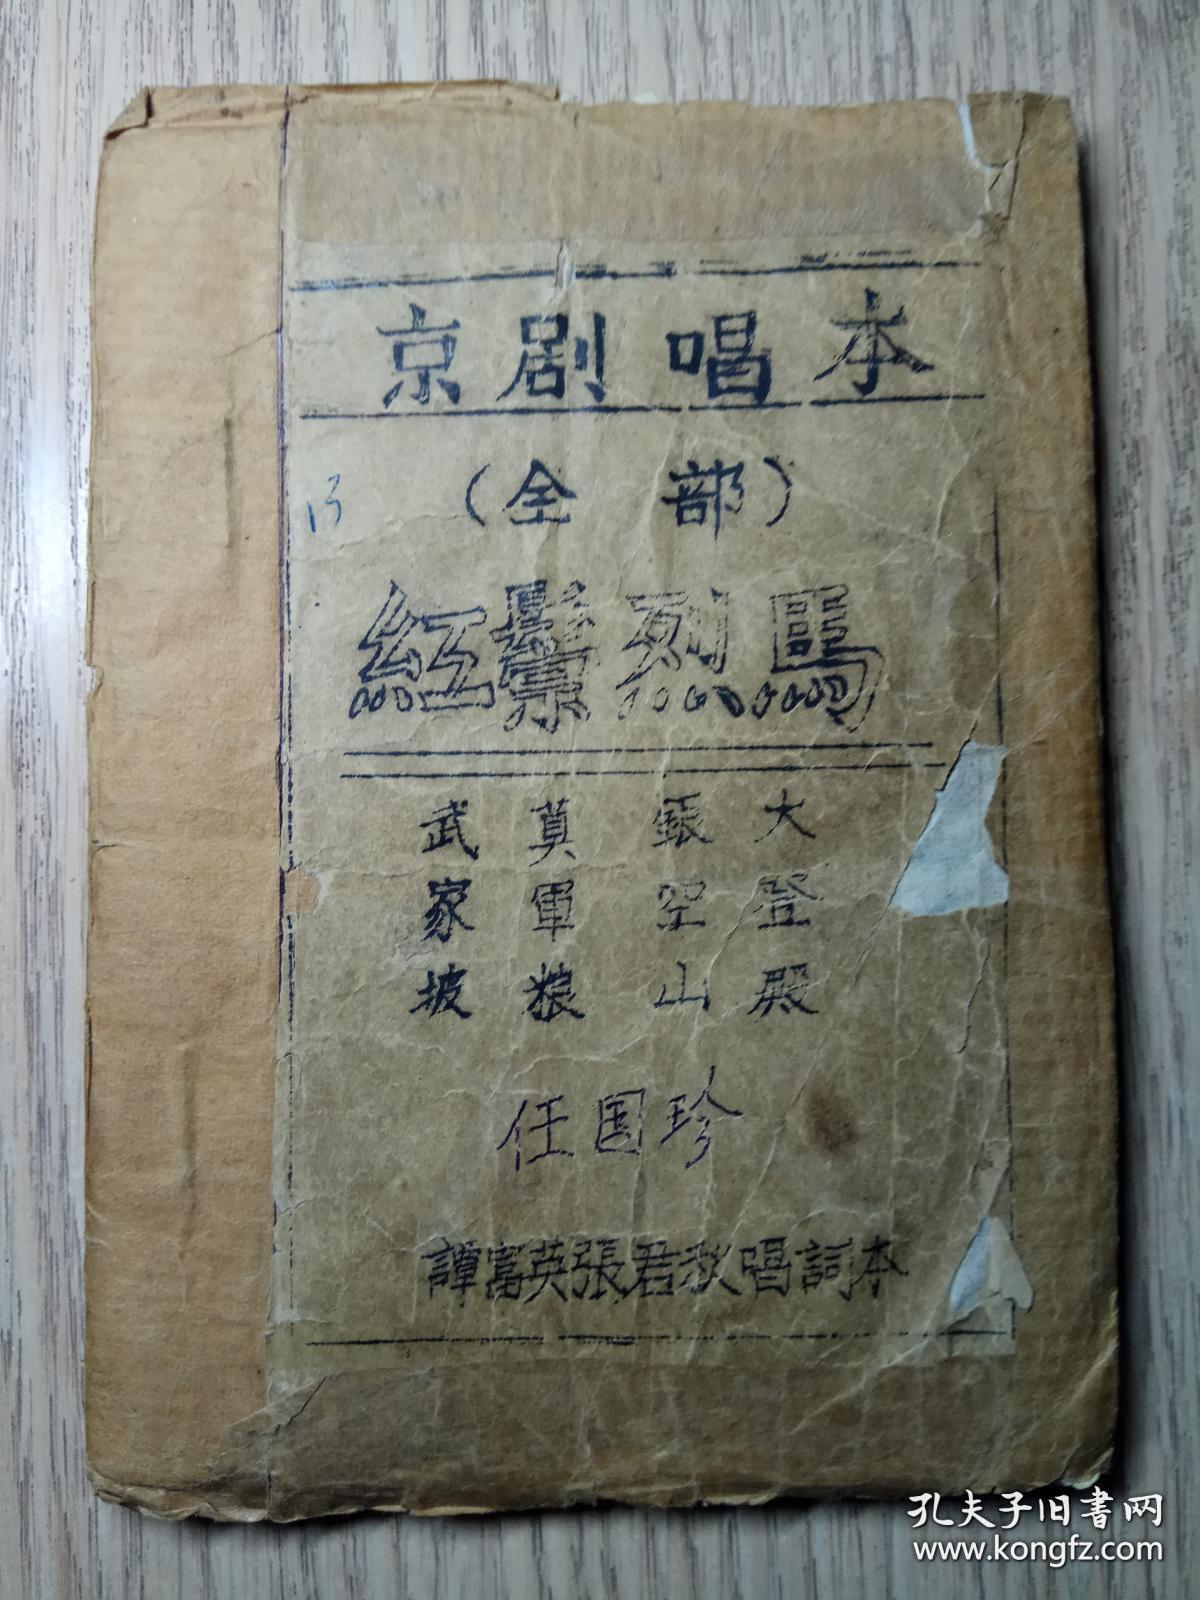 京剧唱本
(全部)
13
紅鬃烈馬
武家坡
算軍粮
銀空山
大登殿
任国珍
譚富英張君秋唱詞本
孔夫子旧书网
www.kongfz.com